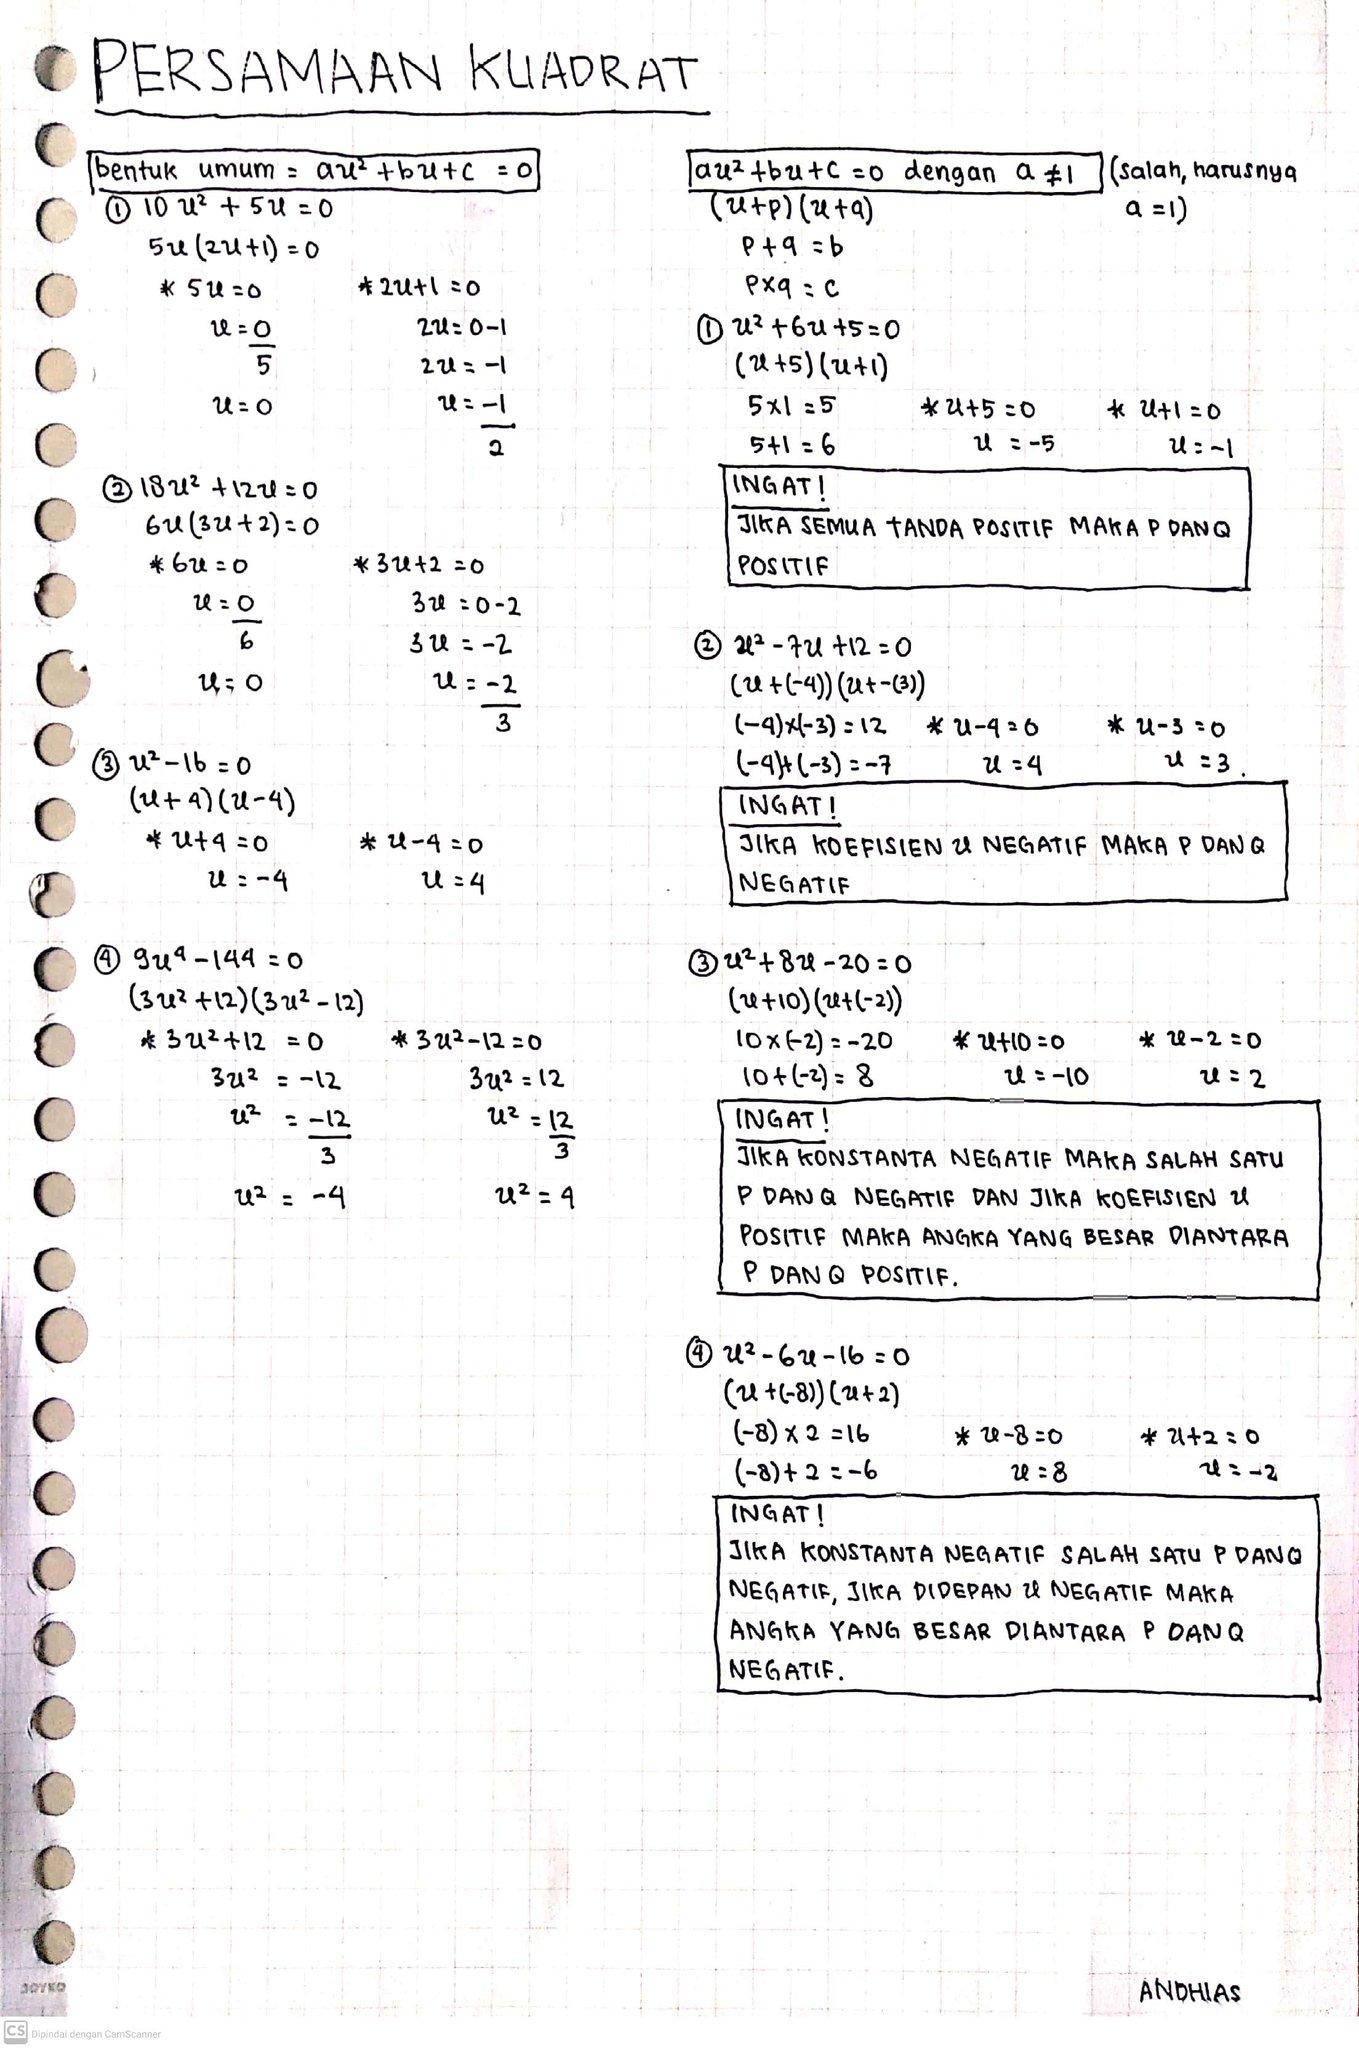 PERSAMAAN KUADRAT
bentuk umum = ax² + bx + c = 0
① 10x² + 5x = 0
5x(2x+1) = 0
* 5x = 0 * 2x+1 = 0
x = 0/5 2x = 0-1
2x = -1
x = 0 x = -1/2
② 18x² + 12x = 0
6x(3x+2) = 0
* 6x = 0 * 3x+2 = 0
x = 0/6 3x = 0-2
3x = -2
x = 0 x = -2/3
③ x² - 16 = 0
(x+4)(x-4)
* x+4 = 0 * x-4 = 0
x = -4 x = 4
④ 9x⁴ - 144 = 0
(3x²+12)(3x²-12)
* 3x²+12 = 0 * 3x²-12 = 0
3x² = -12 3x² = 12
x² = -12/3 x² = 12/3
x² = -4 x² = 4
ax² + bx + c = 0 dengan a ≠ 1 (salah, harusnya
a = 1)
(x+p)(x+q)
p + q = b
p x q = c
① x² + 6x + 5 = 0
(x+5)(x+1)
5x1 = 5 * x+5 = 0 * x+1 = 0
5+1 = 6 x = -5 x = -1
INGAT!
JIKA SEMUA TANDA POSITIF MAKA P DAN Q
POSITIF
② x² - 7x + 12 = 0
(x+(-4))(x+-(3))
(-4)x(-3) = 12 * x-4 = 0 * x-3 = 0
(-4)+(-3) = -7 x = 4 x = 3.
INGAT!
JIKA KOEFISIEN x NEGATIF MAKA P DAN Q
NEGATIF
③ x² + 8x - 20 = 0
(x+10)(x+(-2))
10x(-2) = -20 * x+10 = 0 * x-2 = 0
10+(-2) = 8 x = -10 x = 2
INGAT!
JIKA KONSTANTA NEGATIF MAKA SALAH SATU
P DAN Q NEGATIF DAN JIKA KOEFISIEN x
POSITIF MAKA ANGKA YANG BESAR DIANTARA
P DAN Q POSITIF.
④ x² - 6x - 16 = 0
(x+(-8))(x+2)
(-8) x 2 = 16 * x-8 = 0 * x+2 = 0
(-8)+2 = -6 x = 8 x = -2
INGAT!
JIKA KONSTANTA NEGATIF SALAH SATU P DAN Q
NEGATIF, JIKA DIDEPAN x NEGATIF MAKA
ANGKA YANG BESAR DIANTARA P DAN Q
NEGATIF.
ANDHIAS
JOYKO
CS Dipindai dengan CamScanner